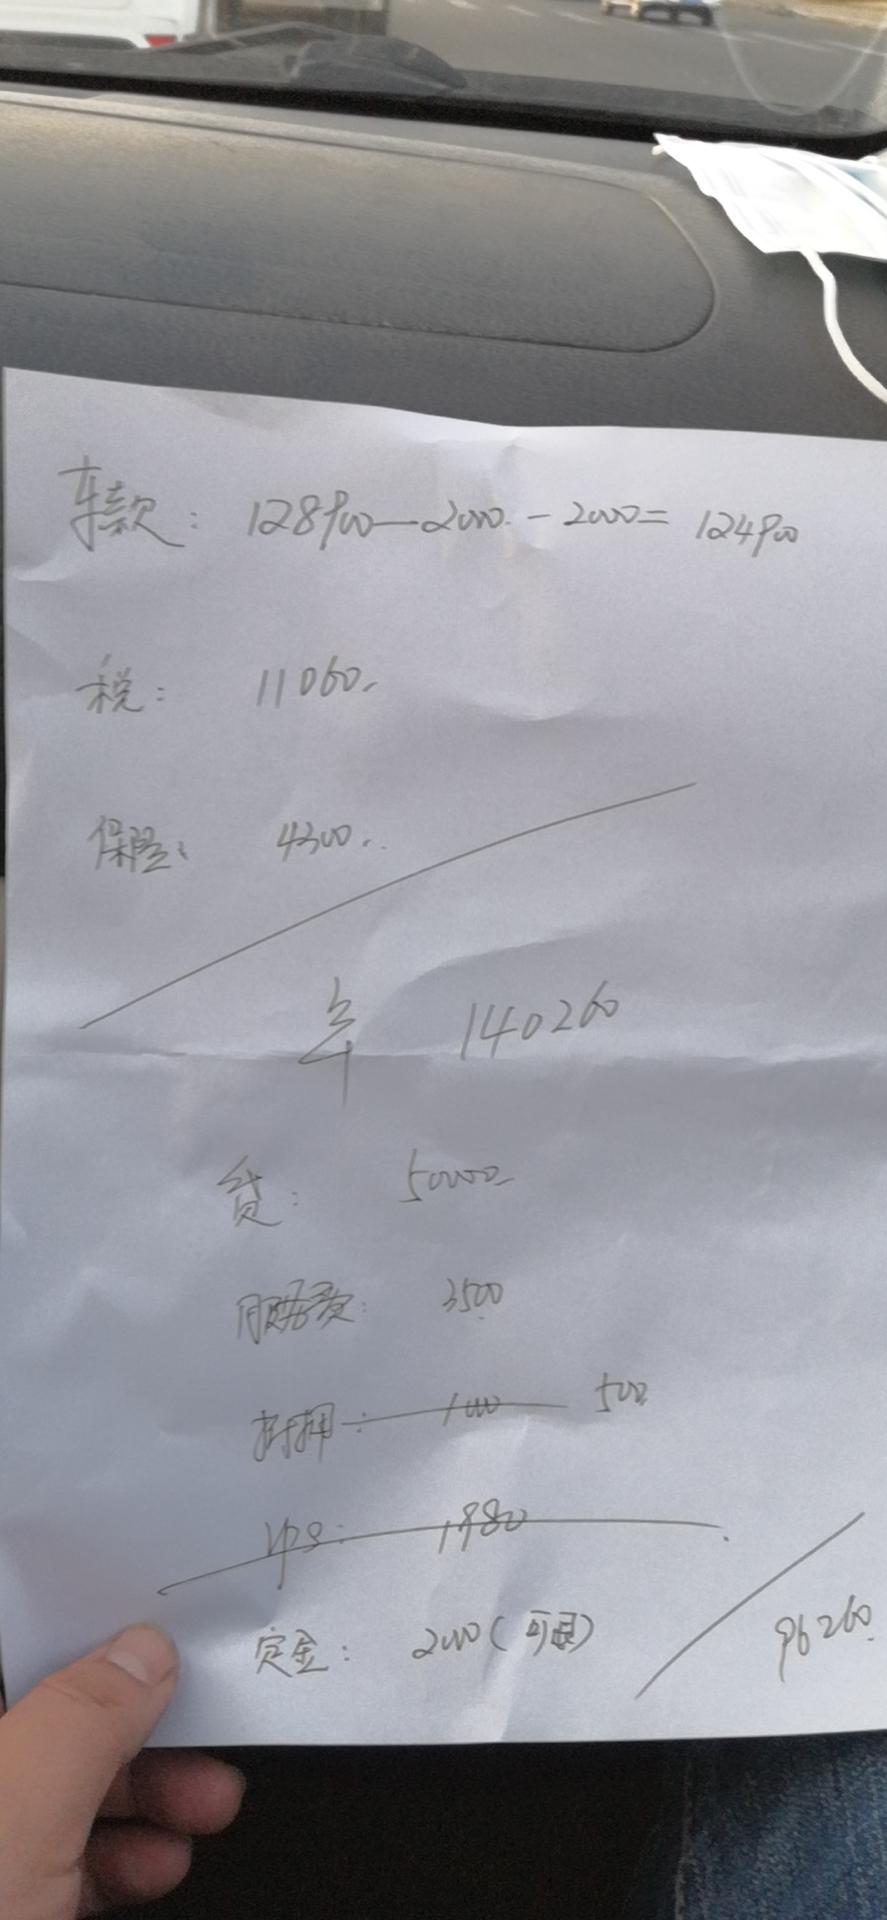 车款: 128900-2000-2000=124900
税: 11060
保险: 4300
车 140260
贷: 50000
服务费: 3500
抵押: 1000 500
gps: 1980
定金: 2000(可退)
96260